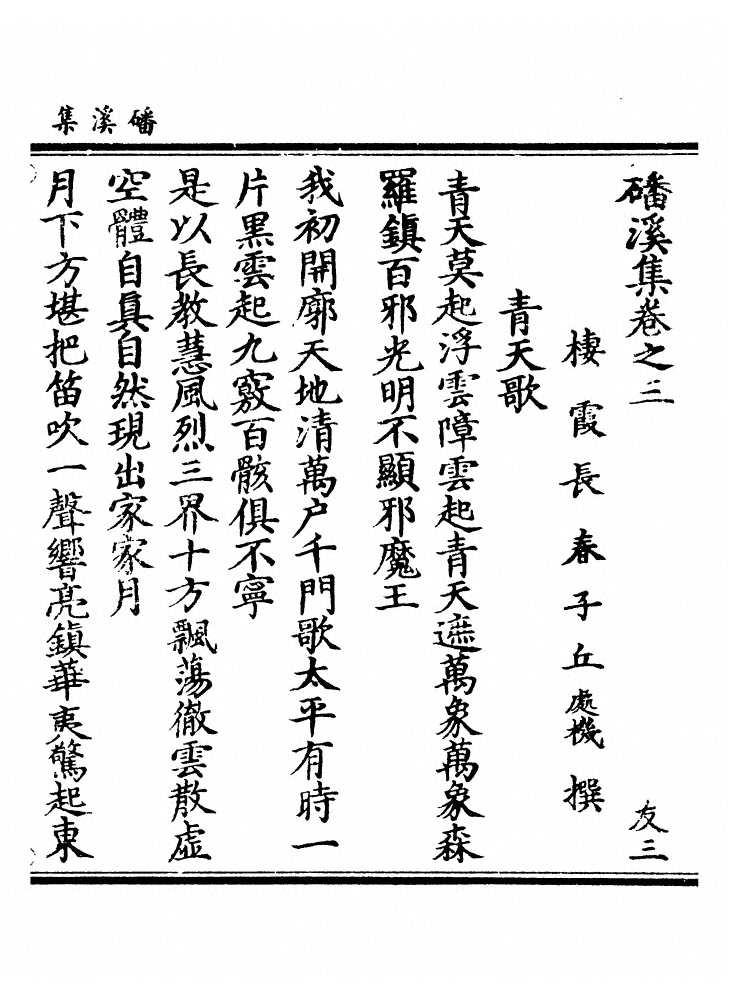 磻溪集
磻溪集卷之三　友三
棲霞長春子丘處機撰
青天歌
青天莫起浮雲障雲起青天遮萬象萬象森
羅鎮百邪光明不顯邪魔王
我初開廓天地清萬户千門歌太平有時一
片黒雲起九竅百骸俱不寧
是以長教慧風烈三界十方飄蕩徹雲散虛
空體自眞自然現出家家月
月下方堪把笛吹一聲響亮鎮華夷驚起東